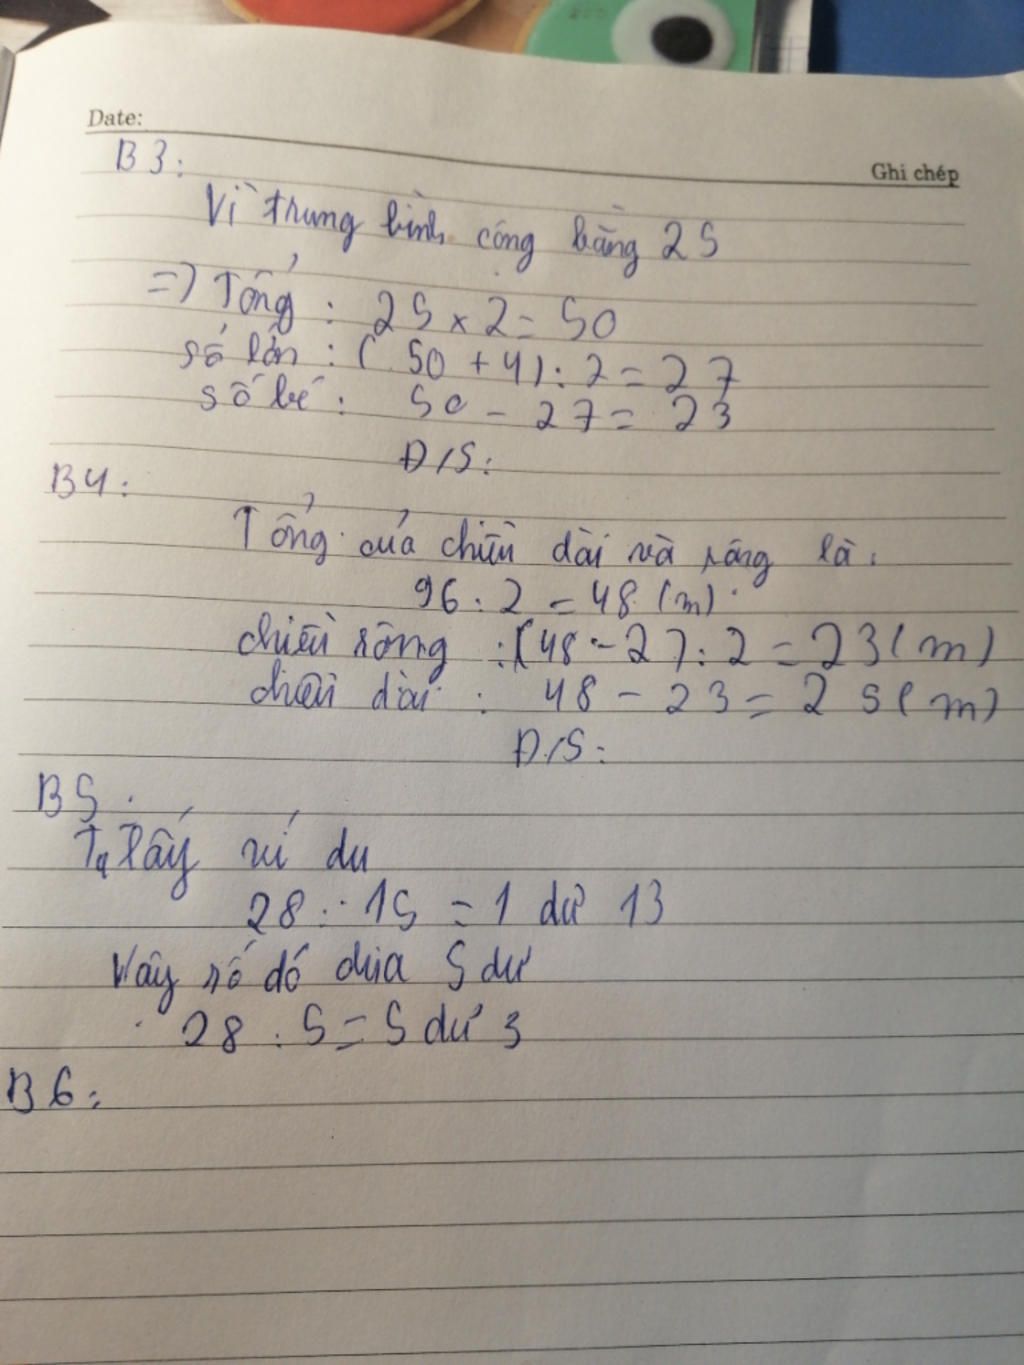 Date:
Ghi chép
B3:
Vì trung bình cộng bằng 25
=) Tổng : 25 x 2 = 50
số lớn : ( 50 + 4) : 2 = 27
số bé : 50 - 27 = 23
Đ/S:
B4:
Tổng của chiều dài và rộng là:
96 : 2 = 48 (m)
chiều rộng : (48 - 2) : 2 = 23 (m)
chiều dài : 48 - 23 = 25 (m)
Đ/S:
B5:
Ta lấy ví dụ
28 : 15 = 1 dư 13
Vậy số đó chia 5 dư
28 : 5 = 5 dư 3
B6: